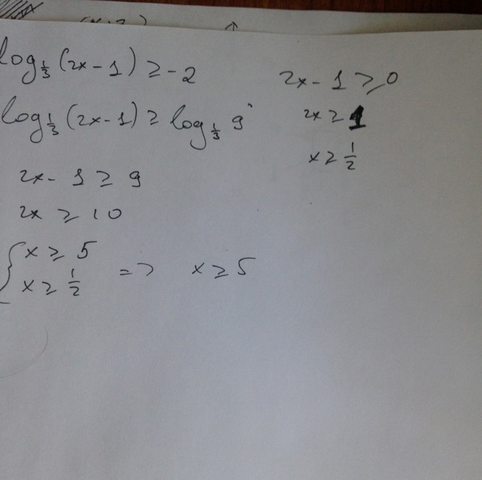 log_{1/3} (2x - 1) ≥ -2
log_{1/3} (2x - 1) ≥ log_{1/3} 9
2x - 1 ≥ 9
2x ≥ 10
{ x ≥ 5
x ≥ 1/2 => x ≥ 5
2x - 1 ≥ 0
2x ≥ 1
x ≥ 1/2